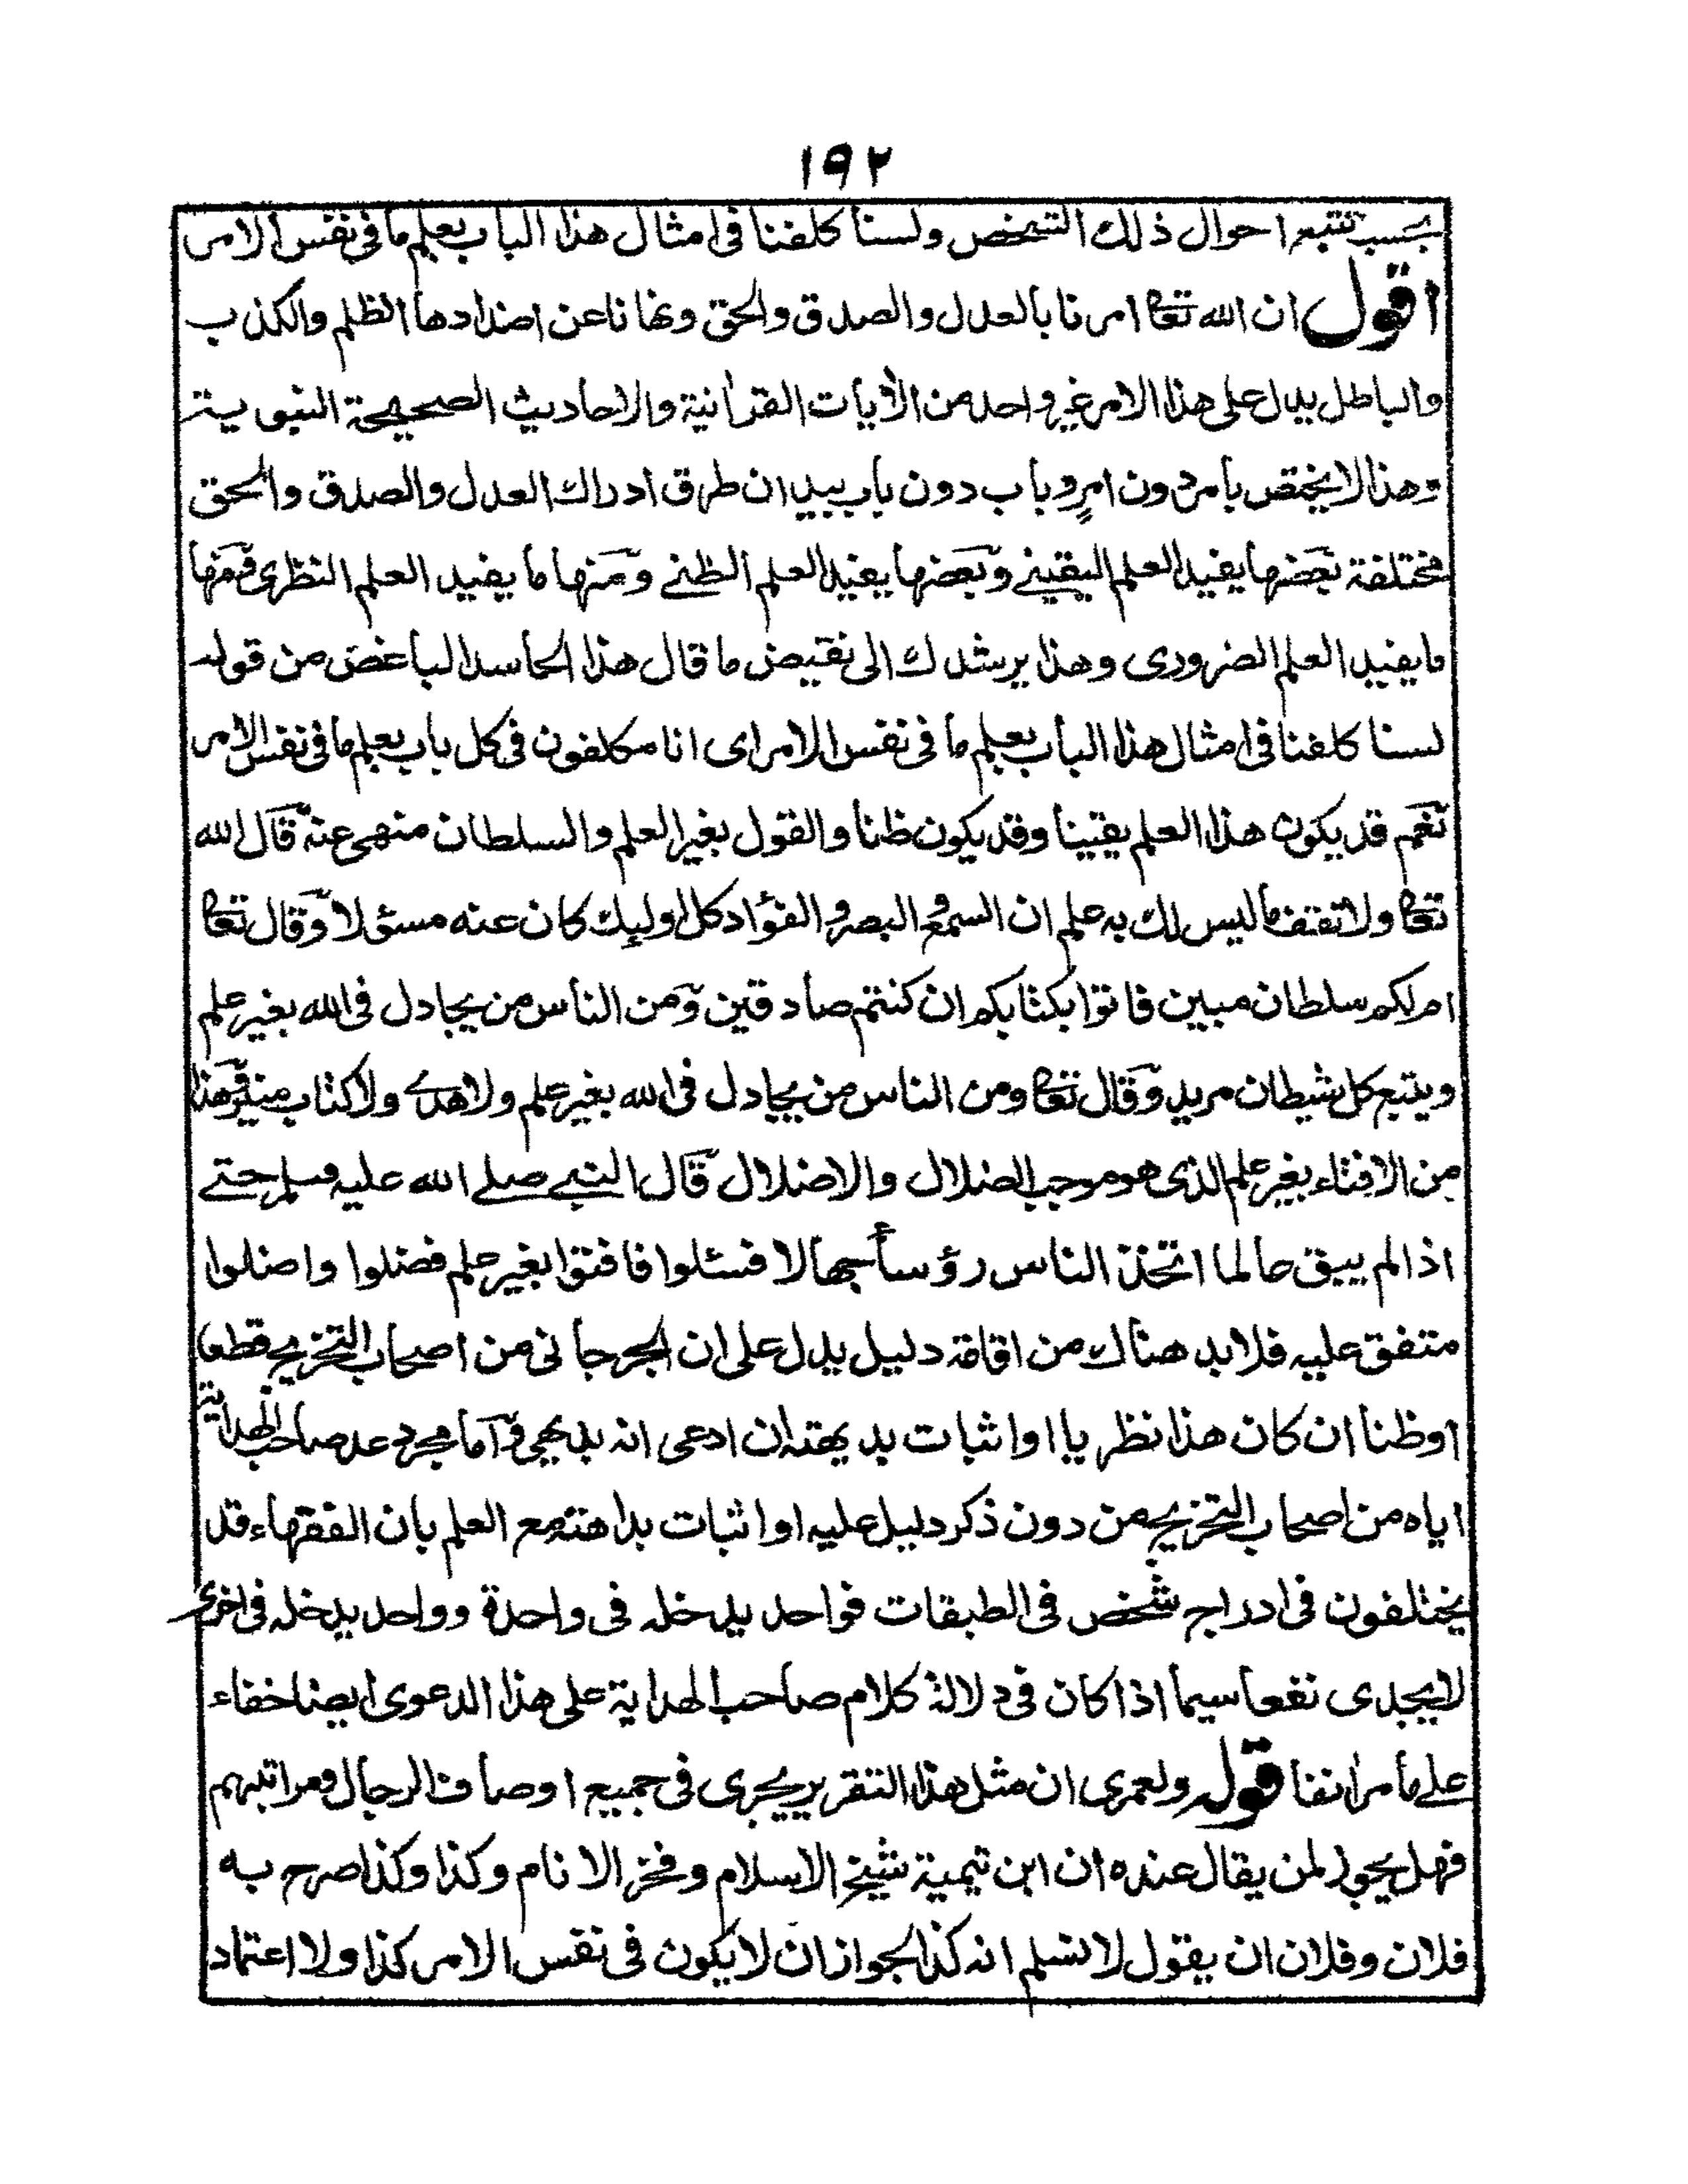 ١٩٢
بحسب تتبع احوال ذلك الشخص ولسنا كلفنا فى امثال هذا الباب بعلم ما فى نفس الامر
اقول ان الله تعالى امرنا بالعدل والصدق والحق ونهانا عن اضدادها الظلم والكذب
والباطل يدل على هذا الامر غير واحد من الآيات القرآنية والاحاديث الصحيحة النبوية
وهذا لا يختص بامر دون امرٍ وباب دون باب بيد ان طرق ادراك العدل والصدق والحق
مختلفة بعضها يفيد العلم اليقينے وبعضها يفيد العلم الظنے ومنها ما يفيد العلم النظرى ومنها
ما يفيد العلم الضرورى وهذا يرشدك الى نقيض ما قال هذا الحاسد الباغض من قوله
لسنا كلفنا فى امثال هذا الباب بعلم ما فى نفس الامر اى انا مكلفون فى كل باب بعلم ما فى نفس الامر
نعم قد يكون هذا العلم يقينا وقد يكون ظنا والقول بغير العلم والسلطان منهى عنه قال الله
تعالى ولا تقف ما ليس لك به علم ان السمع والبصر والفؤاد كل اولٰئك كان عنه مسئولا وقال تعالى
ام لكم سلطان مبين فاتوا بكتابكم ان كنتم صادقين ومن الناس من يجادل فى الله بغير علم
ويتبع كل شيطان مريد وقال تعالى ومن الناس من يجادل فى الله بغير علم ولا هدے ولا كتاب منير وهذا
من الافتاء بغير علم الذى هو موجب الضلال والاضلال قال النبے صلے الله عليه وسلم حتے
اذا لم يبق عالما اتخذ الناس رؤسأ جهالا فسئلوا فافتوا بغير علم فضلوا واضلوا
متفق عليه فلا بد هناك من اقامة دليل يدل على ان الجرجانى من اصحاب التخريج قطعا
اوظنا ان كان هذا نظريا او اثبات بديهته ان ادعى انه بديهى واما مجرد عد صاحب الهداية
اياه من اصحاب التخريج من دون ذكر دليل عليه او اثبات بداهته مع العلم بان الفقهاء قد
يختلفون فى ادراج شخص فى الطبقات فواحد يدخله فى واحدة وواحد يدخله فى اخرى
لا يجدى نفعا سيما اذا كان فى دلالة كلام صاحب الهداية على هذا الدعوى ايضا خفاء
علے ما مر آنفا قوله ولعمرى ان مثل هذا التقرير يجرى فى جميع اوصاف الرجال ومراتبهم
فهل يجوز لمن يقال عنده ان ابن تيمية شيخ الاسلام وفخر الانام وكذا وكذا صرح به
فلان وفلان ان يقول لا نسلم انه كذا لجواز ان لا يكون فى نفس الامر كذا ولا اعتماد